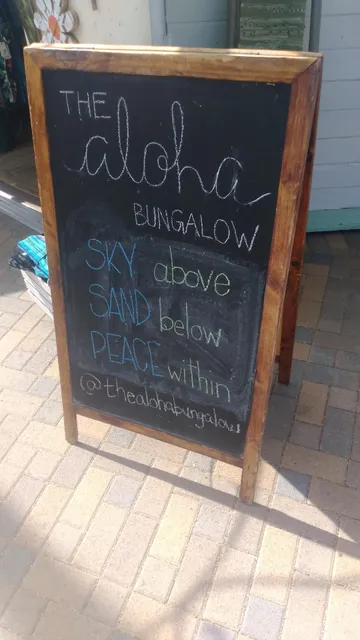 THE
aloha
BUNGALOW
SKY above
SAND below
PEACE within
@thealohabungalow